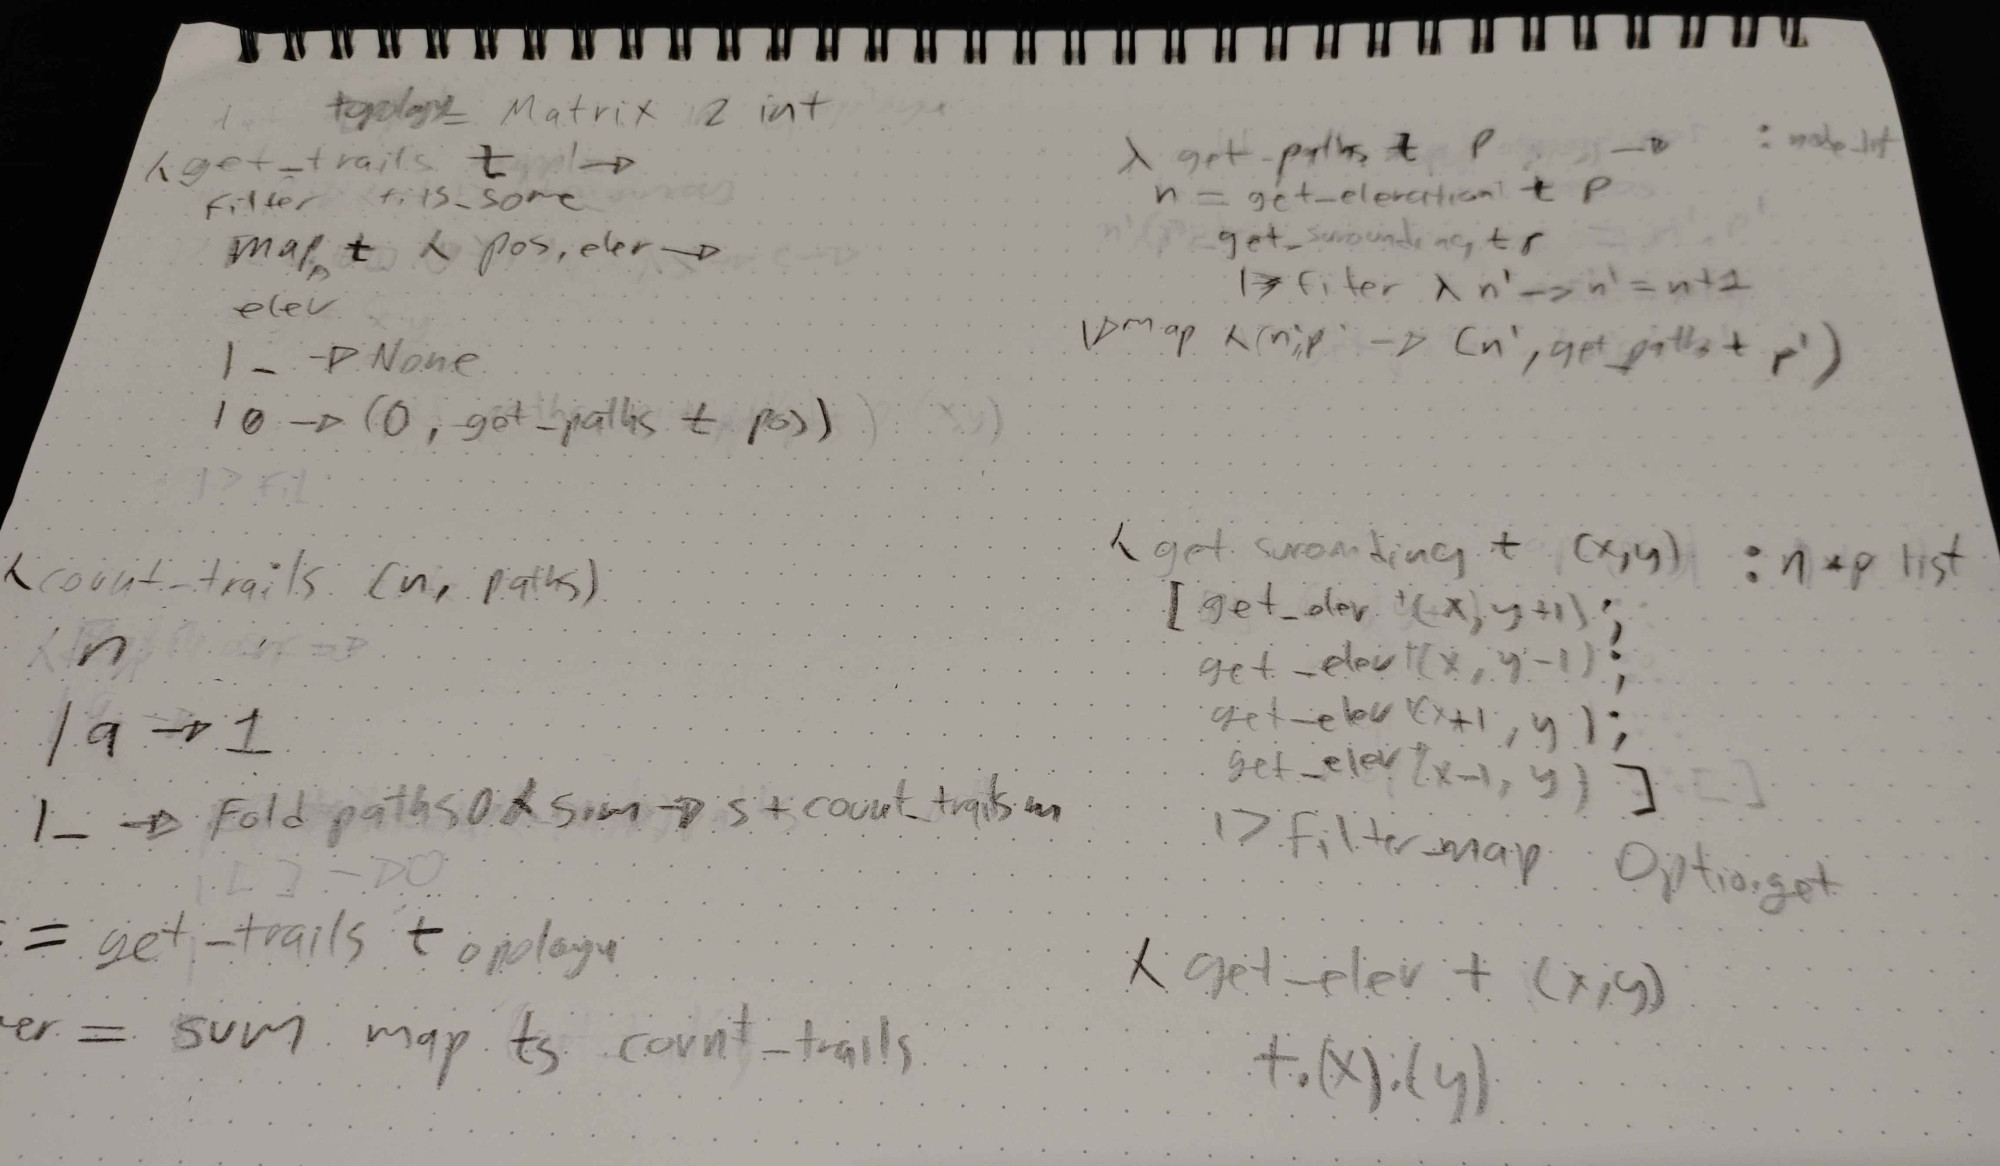 topology = Matrix 2 int
λ get_trails t →
filter is_some
map t λ pos, elev →
elev
| _ → None
| 0 → (0, get_paths t pos)
|> Fil
λ count_trails (n, paths)
n
| 9 → 1
| _ → Fold paths 0 λ s, m → s + count_trails m
[ ] → 0
= get_trails topology
er = sum map ts count_trails
λ get_paths t p → : node list
n = get_elevation t p
get_surounding t p
|> filter λ n' -> n' = n+1
|> map λ (n', p' → (n', get_paths t p')
λ get surounding t (x,y) : n * p list
[ get_elev t (x, y+1);
get_elev t (x, y-1);
get_elev t (x+1, y);
get_elev t (x-1, y) ]
|> filter_map Option.get
λ get_elev t (x,y)
t.(x).(y)